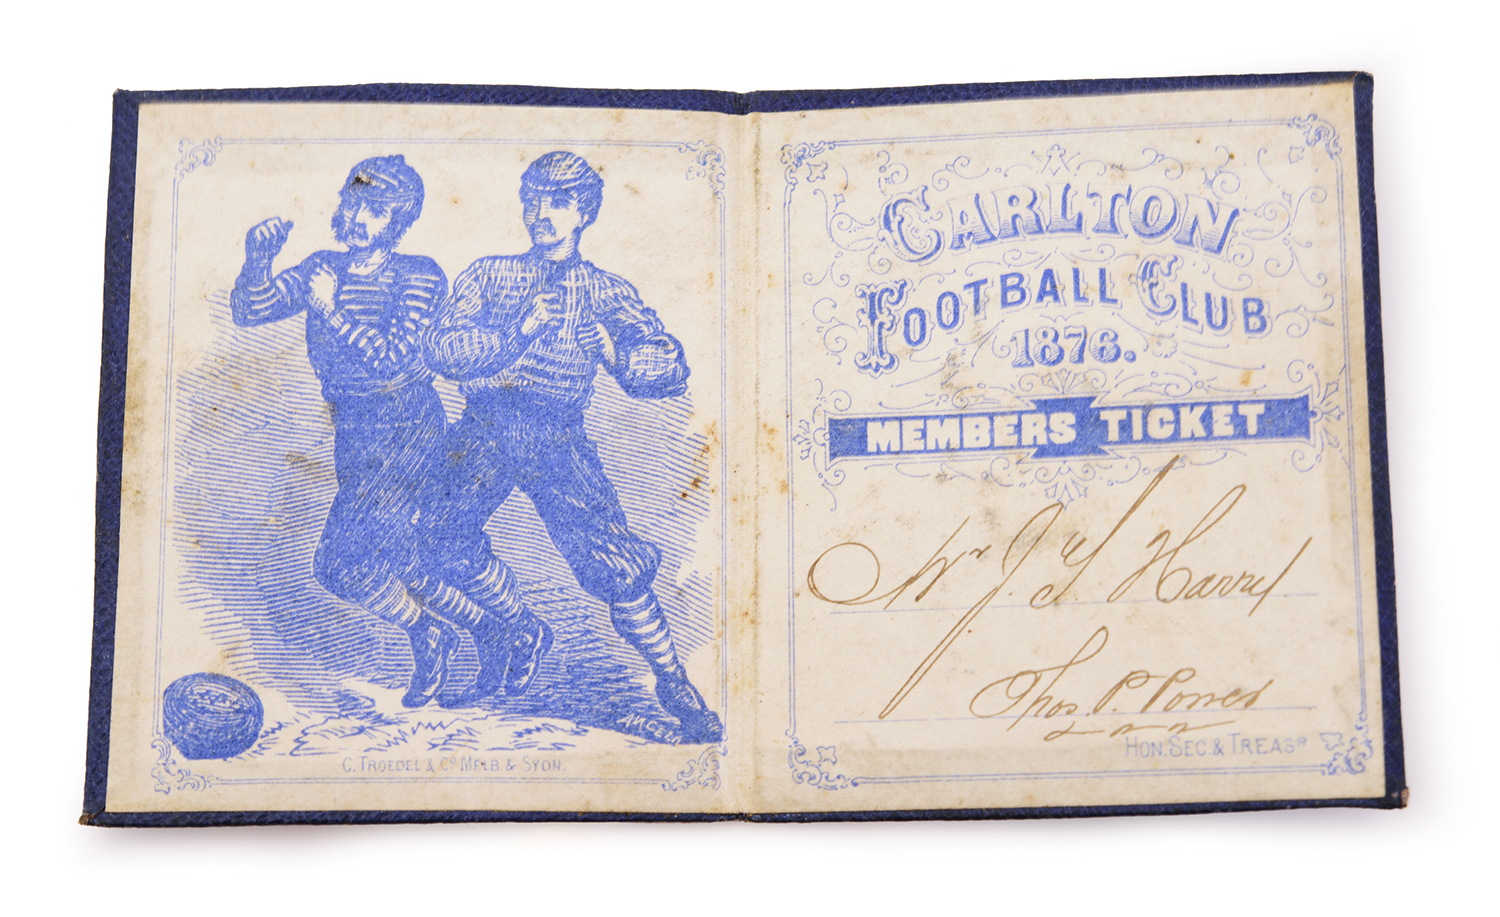 ANGELO
C. TROEDEL & Co. MELB & SYDN.
CARLTON
FOOTBALL CLUB
1876.
MEMBERS TICKET
Mr J. Harrel
Thos. P. Power
HON. SEC. & TREASR